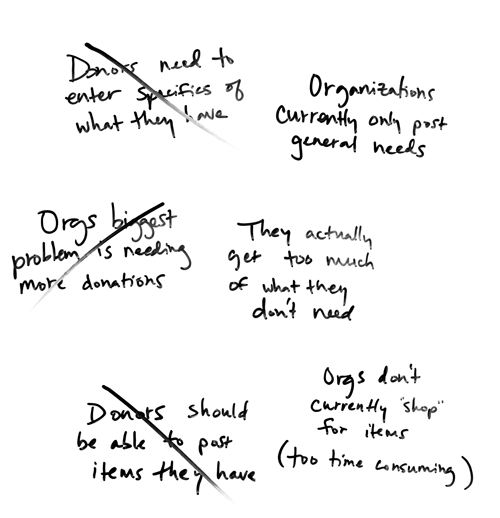 Donors need to
enter specifics of
what they have
Organizations
currently only post
general needs
Orgs biggest
problem is needing
more donations
They actually
get too much
of what they
don't need
Donors should
be able to post
items they have
Orgs don't
currently "shop"
for items
(too time consuming)